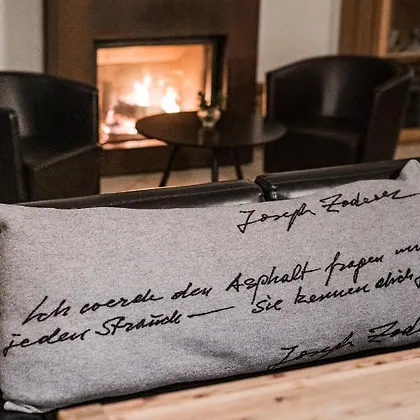 Joseph Zoderer
Ich werde den Asphalt fragen und
jeden Strauch — sie kennen dich
Joseph Zod